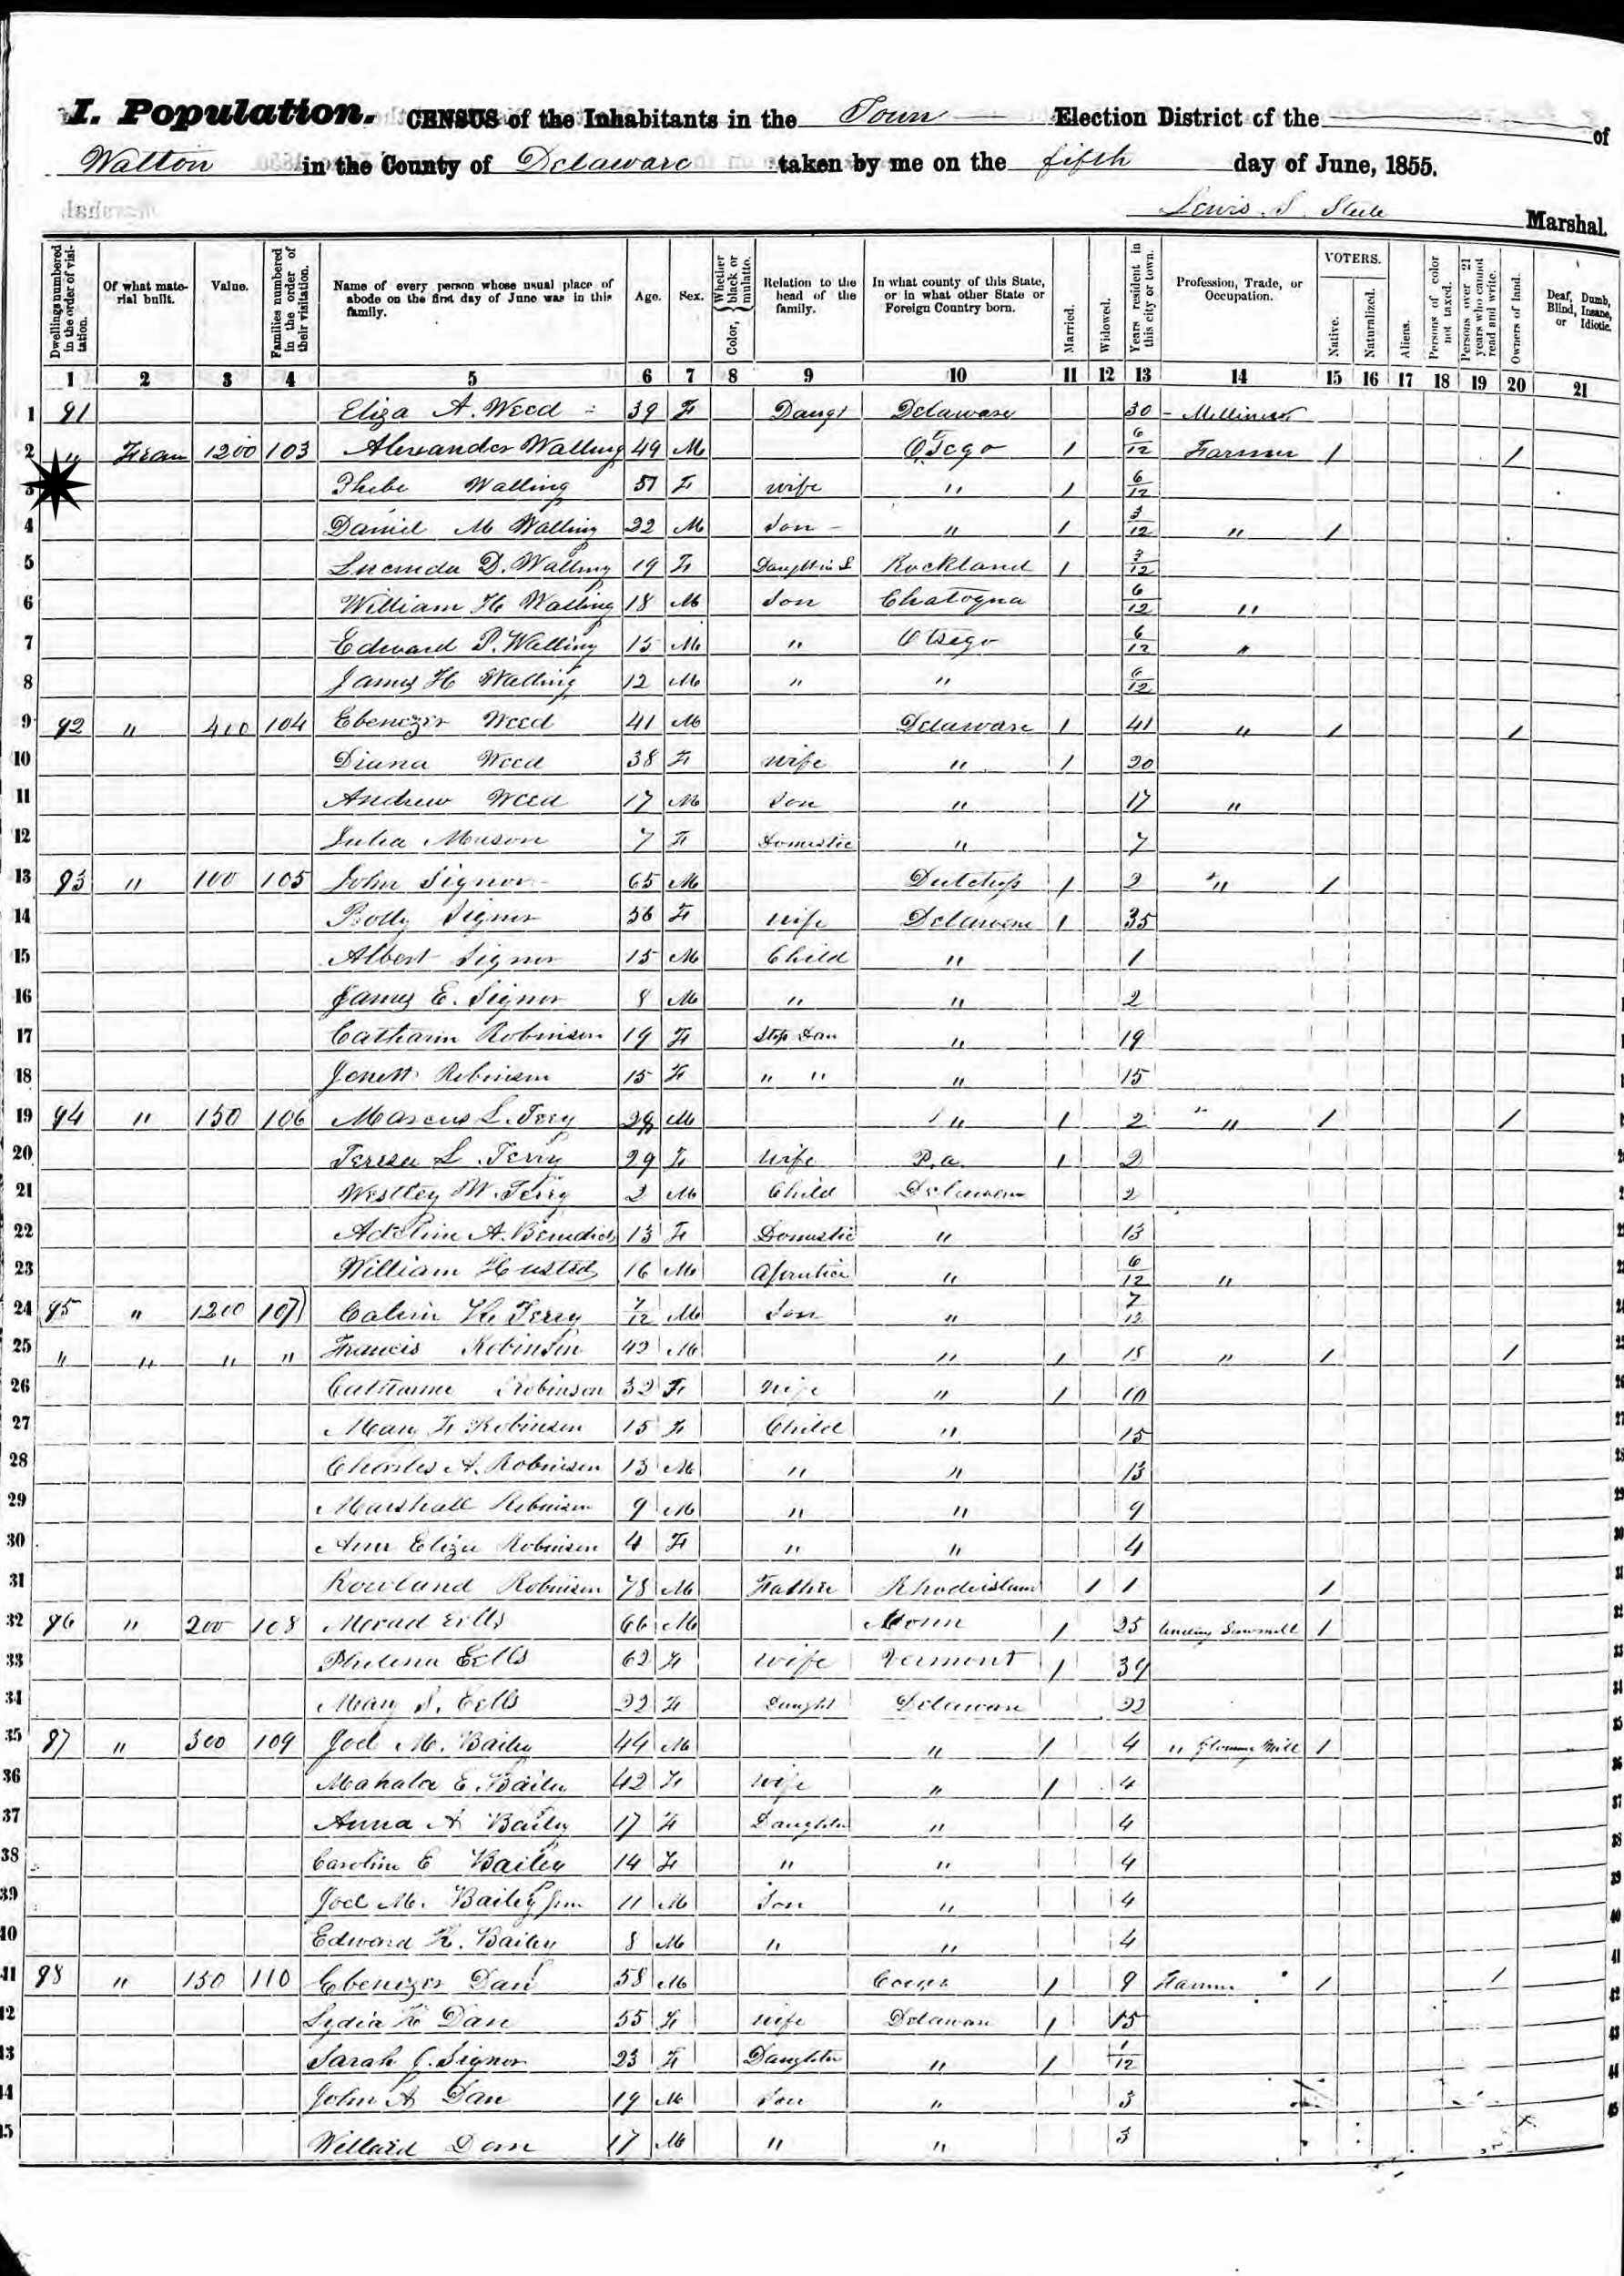 I. Population. CENSUS of the Inhabitants in the Town Election District of the of
Walton in the County of Delaware taken by me on the fifth day of June, 1855.
Lewis S. Steele Marshal.
Dwellings numbered in the order of visitation. Of what material built. Value. Families numbered in the order of their visitation. Name of every person whose usual place of abode on the first day of June was in this family. Age. Sex. Color, Whether black or mulatto. Relation to the head of the family. In what county of this State, or in what other State or Foreign Country born. Married. Widowed. Years resident in this city or town. Profession, Trade, or Occupation. VOTERS. Native. Naturalized. Aliens. Persons of color not taxed. Persons over 21 years who cannot read and write. Owners of land. Deaf, Dumb, Blind, Insane, or Idiotic.
1 2 3 4 5 6 7 8 9 10 11 12 13 14 15 16 17 18 19 20 21
1 91 Eliza A. Weed 39 F Daugt Delaware 30 Milliner
2 " Fram 1200 103 Alexander Walling 49 M Otsego 1 6/12 Farmer 1 1
3 Phebe Walling 51 F wife " 1 6/12
4 Daniel M Walling 22 M Son " 1 3/12 " 1
5 Lucinda D. Walling 19 F Daught in L Rockland 1 3/12
6 William H Walling 18 M Son 6/12 "
7 Edward P. Walling 15 M " Otsego 6/12 "
8 James H Walling 12 M " " 6/12
9 92 " 400 104 Ebenezer Weed 41 M Delaware 1 41 " 1 1
10 Diana Weed 38 F wife " 1 20
11 Andrew Weed 17 M Son " 17 "
12 Julia Mason 7 F Domestic " 7
13 93 " 100 105 John Signor 65 M Dutchess 1 2 " 1
14 Polly Signor 56 F wife Delaware 1 35
15 Albert Signor 15 M Child " 1
16 James E. Signor 8 M " " 2
17 Catharin Robinson 19 F Step Dau " 19
18 Jenett Robinson 15 F " " " 15
19 94 " 150 106 Marcus L. Tery M " 1 2 " 1 1
20 Teresa L. Terry 29 F wife P.a. 1 2
21 Westley W. Terry 2 M Child Delaware 2
22 Adeline A. Benedict 13 F Domestic " 13
23 William Husted 16 M " 6/12 "
24 95 " 1200 107 Calvin H. Terry 7/12 M Son " 7/12
25 " " " " Francis Robinson 42 M " 1 18 " 1 1
26 Catharine Robinson 32 F wife " 1 10
27 Mary F Robinson 15 F Child " 15
28 Charles A. Robinson 13 M " " 13
29 Marshall Robinson 9 M " " 9
30 Ann Eliza Robinson 4 F " " 4
31 Rowland Robinson 78 M Father Rhodeisland 1 1 1
32 96 " 200 108 Eells 66 M Conn 1 25 Sawmill 1
33 Philena Eells 62 F wife Vermont 1 39
34 Mary S. Eells 22 F Daught Delaware 22
35 97 " 300 109 Joel M. Bailey 44 M " 1 4 " Mill 1
36 Mahala E. Bailey 42 F wife " 1 4
37 Anna A Bailey 17 F Daughter " 4
38 Caroline E Bailey 14 F " " 4
39 Joel M. Bailey Jun 11 M Son " 4
40 Edward K. Bailey 8 M " " 4
41 98 " 150 110 Ebenezer Dan 58 M 1 9 Farmer 1 1
42 Lydia Dan 55 F wife Delaware 1 15
43 Sarah J. Signor 23 F Daughter " 1 1/12
44 John A Dan 19 M Son " 3
45 Willard Dan 17 M " " 3